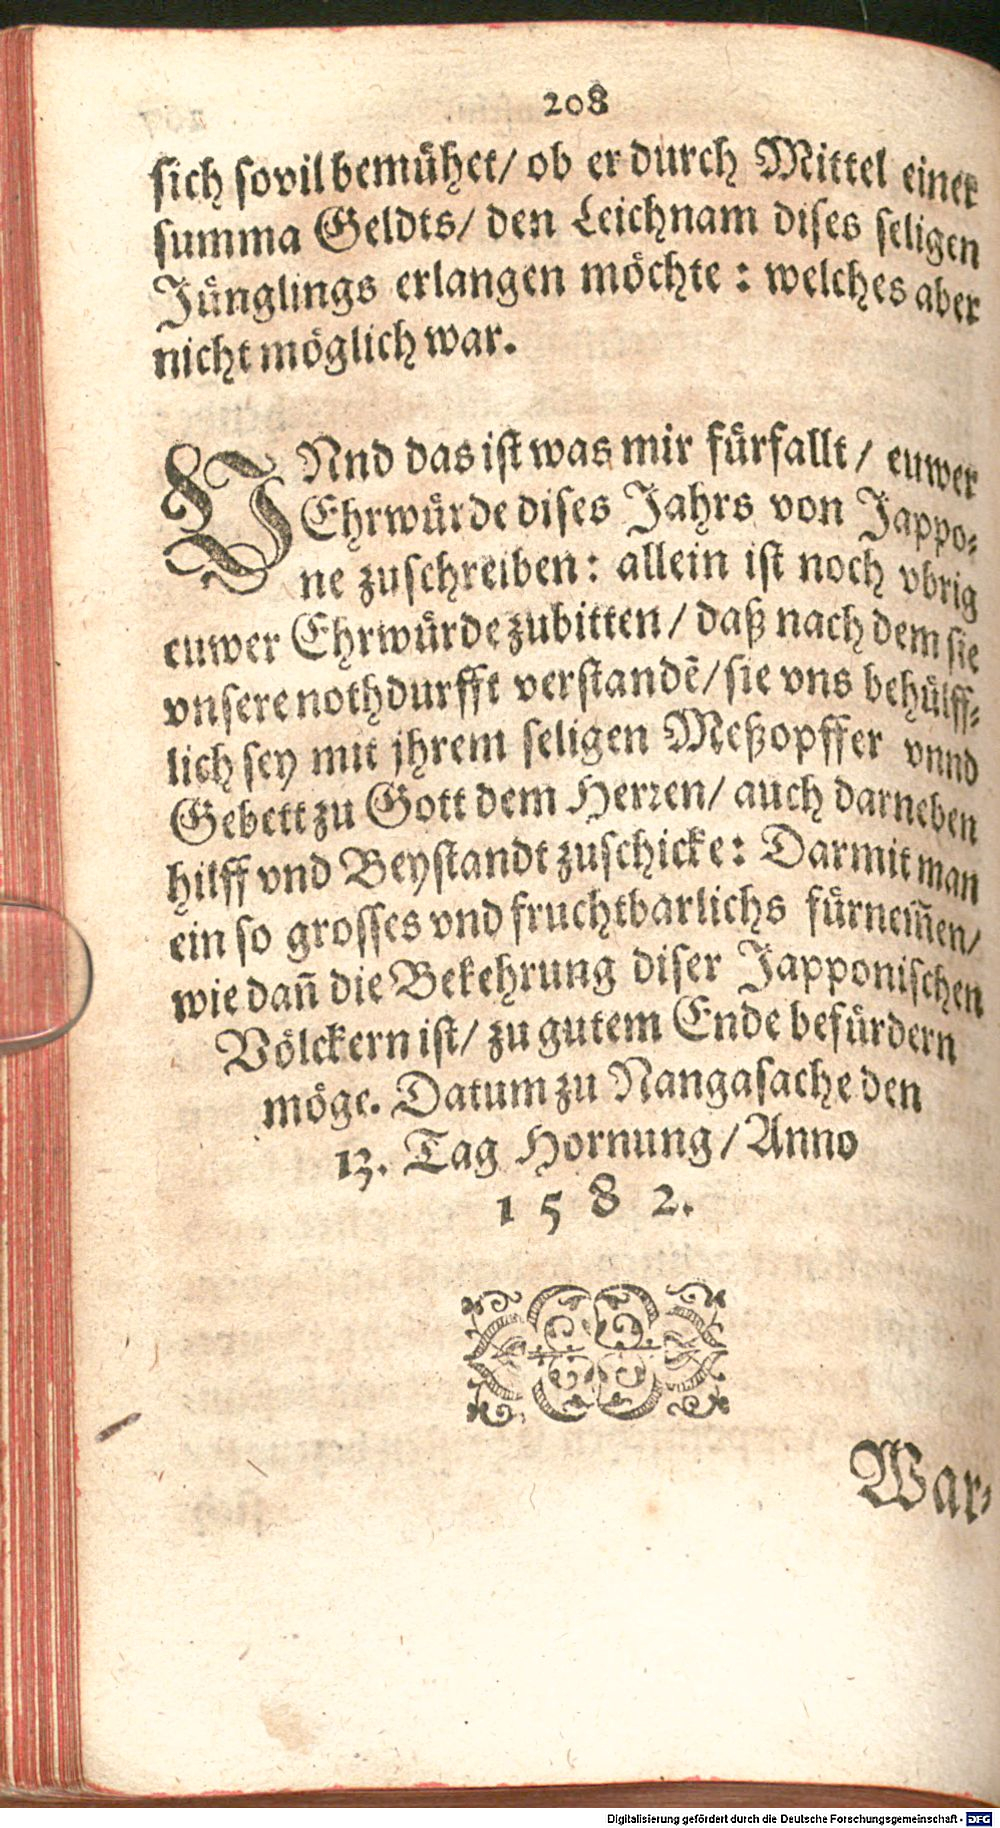 208
sich sovil bemühet/ ob er durch Mittel einer
summa Geldts/ den Leichnam dises seligen
Jünglings erlangen möchte: welches aber
nicht möglich war.
VNnd das ist was mir fürfallt/ euwer
Ehrwürde dises Jahrs von Jappo-
ne zuschreiben: allein ist noch vbrig
euwer Ehrwürde zubitten/ daß nach dem sie
vnsere nothdurfft verstandē/ sie vns behülff-
lich sey mit jhrem seligen Meßopffer vnnd
Gebett zu Gott dem Herren/ auch darneben
hilff vnd Beystandt zuschicke: Darmit man
ein so grosses vnd fruchtbarlichs fürnem̄en/
wie dan̄ die Bekehrung diser Japponischen
Völckern ist/ zu gutem Ende befürdern
möge. Datum zu Nangasache den
13. Tag Hornung/ Anno
1582.
War-
Digitalisierung gefördert durch die Deutsche Forschungsgemeinschaft - DFG